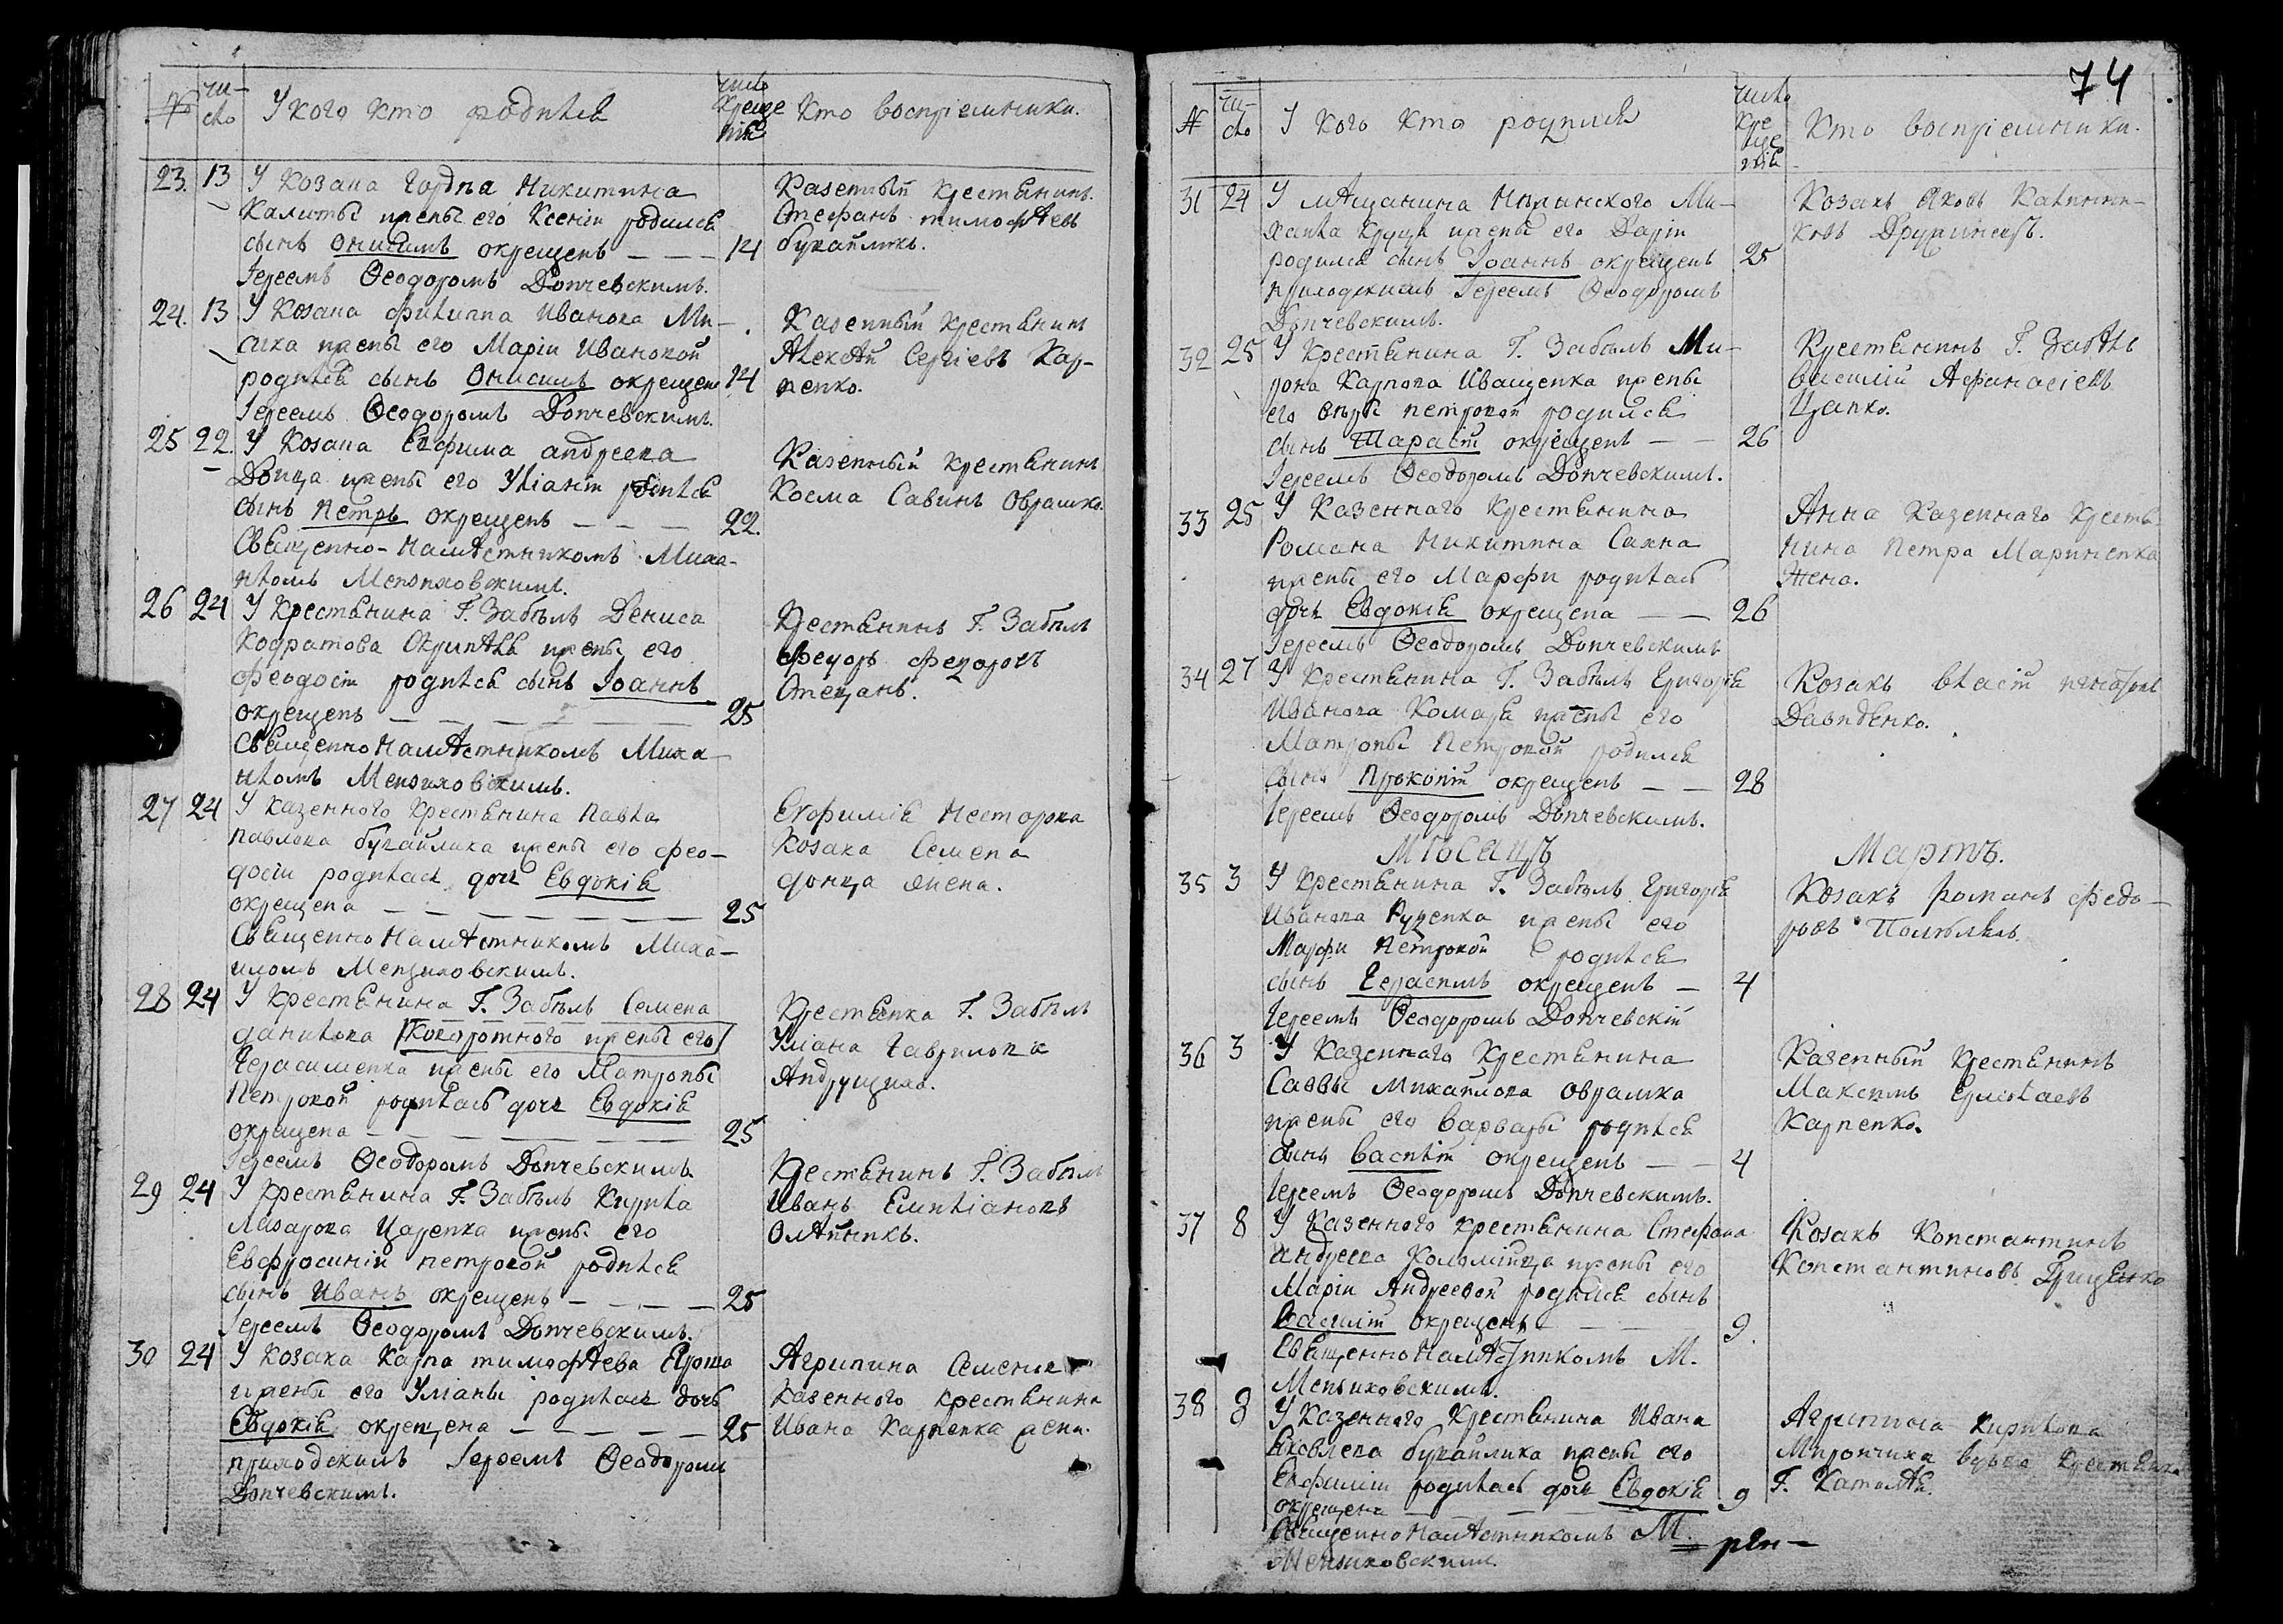 №
чи-
сло
У кого кто родился
число
креще
нiя
Кто воспрiемники.
23. 13 У козака Гордѣа Никитина
Калиты жены его Ксенiи родился
сынъ Онисимъ окрещенъ — — — 14
Iереемъ Ѳеодоромъ Дончевскимъ.
Казенный крестьянинъ
Стефанъ тимофѣевъ
бугайликъ.
24. 13 У козака Филиппа Иванова Ми-
сика жены его Марiи Ивановой
родился сынъ Онисимъ окрещенъ 14
Iереемъ Ѳеодоромъ Дончевскимъ.
Казенный крестьянинъ
Алексѣй Сергiевъ Кар-
пенко.
25 22. У козака Евфима андреева
Донца жены его Улiанiи родился
сынъ Петръ окрещенъ — — — 22.
Священно-намѣстникомъ Миха-
иломъ Менжиховскимъ.
Казенный крестьянинъ
Косма Савинъ Оврашко.
26 24 У крестьянина Г. Забѣлъ Дениса
Кодратова жены его
Феодосiи родился сынъ Iоаннъ
окрещенъ — — — — — 25
Священно намѣстникомъ Миха
иломъ Менжиховскимъ.
Крестьянинъ Г. Забѣлъ
Федоръ Федоровъ
Стецань.
27 24 У казенного крестьянина Павла
Павлова бугайлика жены его Фео-
досiи родилась дочь Евдокiя
окрещена — — — — — — — 25
Священно намѣстникомъ Миха-
иломъ Менжиховскимъ.
Евфимiя Несторва
Козака Семена
донца жена.
28 24 У крестьянина Г. Забѣлъ Семена
данилова Кокоротного жены его
Герасименка жены его Матроны
Петровой родилась дочь Евдокiя
окрещена — — — — — — — 25
Iереемъ Ѳеодоромъ Дончевскимъ
Крестьянка Г. Забѣлъ
Улiана Гаврилова
Андрущиха.
29 24 У крестьянина Г. Забѣлъ Кирила
Лазарова Царенка жены его
Евфросинiи петровой родился
сынъ Иванъ окрещенъ — — — — 25
Iереемъ Ѳеодоромъ Дончевскимъ.
Крестьянинъ Г. Забѣлъ
Иванъ Емилiановъ
Олѣйникъ.
30 24 У козака Карпа тимофѣева
жены его Улiаны родилась дочь
Евдокiя окрещена — — — — — 25
приходскимъ Iереемъ Ѳеодоромъ
Дончевскимъ.
Агрипина Семенова
казенного крестьянина
Ивана Карпенка жена.
74
№
чи-
сло
У кого кто родился
число
кре
ще
нiя
Кто воспрiемники.
31 24 У мѣщанина Нѣжинского Ми-
хаила жены его Дарiи
родился сынъ Iоаннъ окрещенъ 25
приходскимъ Iереемъ Ѳеодоромъ
Дончевскимъ.
Козакъ Яковъ Калинни-
ковъ
32 25 У крестьянина Г. Забѣлъ Ми-
рона Карпова Иващенка жены
его петровой родился
сынъ Тарасiй окрещенъ — — 26
Iереемъ Ѳеодоромъ Дончевскимъ.
Крестьянинъ Г. Забѣлъ
василiй Афанасiевъ
Цапко.
33 25 У казеннаго крестьянина
Романа Никитина Сахна
жены его Марфы родилась
дочь Евдокiя окрещена — — 26
Iереемъ Ѳеодоромъ Дончевскимъ
Анна казеннаго крестья
нина Петра Мариненка
Жена.
34 27 У крестьянина Г. Забѣлъ Григорiя
Иванова Комаря жены его
Матроны Петровой родился
сынъ Прокопiй окрещенъ — — 28
Iереемъ Ѳеодоромъ Дончевскимъ.
Козакъ власiй
Давиденко.
Мѣсяцъ Мартъ.
35 3 У крестьянина Г. Забѣлъ Григорiя
Иванова Руденка жены его
Марфы Петровой родился
сынъ Герасимъ окрещенъ — 4
Iереемъ Ѳеодоромъ Дончевскiй
Козакъ романъ Федо-
ровъ
36 3 У казеннаго крестьянина
Саввы Михайлова Оврашка
жены его варвары родился
сынъ василiй окрещенъ — — 4
Iереемъ Ѳеодоромъ Дончевскимъ.
Казенный крестьянинъ
Максимъ Ермолаевъ
Карпенко.
37 8 У казенного крестьянина Стефана
андреева Коломiйца жены его
Марiи Андреевой родился сынъ
Василiй окрещенъ — — — 9.
Священно намѣстникомъ М.
Менжиховскимъ.
Козакъ Константинъ
Константиновъ Грищенко
38 8 У казенного крестьянина Ивана
Яковлева бугайлика жены его
Евфимiи родилась дочь Евдокiя 9
окрещена
Священно намѣстникомъ М.
Менжиховскимъ.
Агрипина Кирилова
Мирончиха вдова крестьянка
Г.
рги-